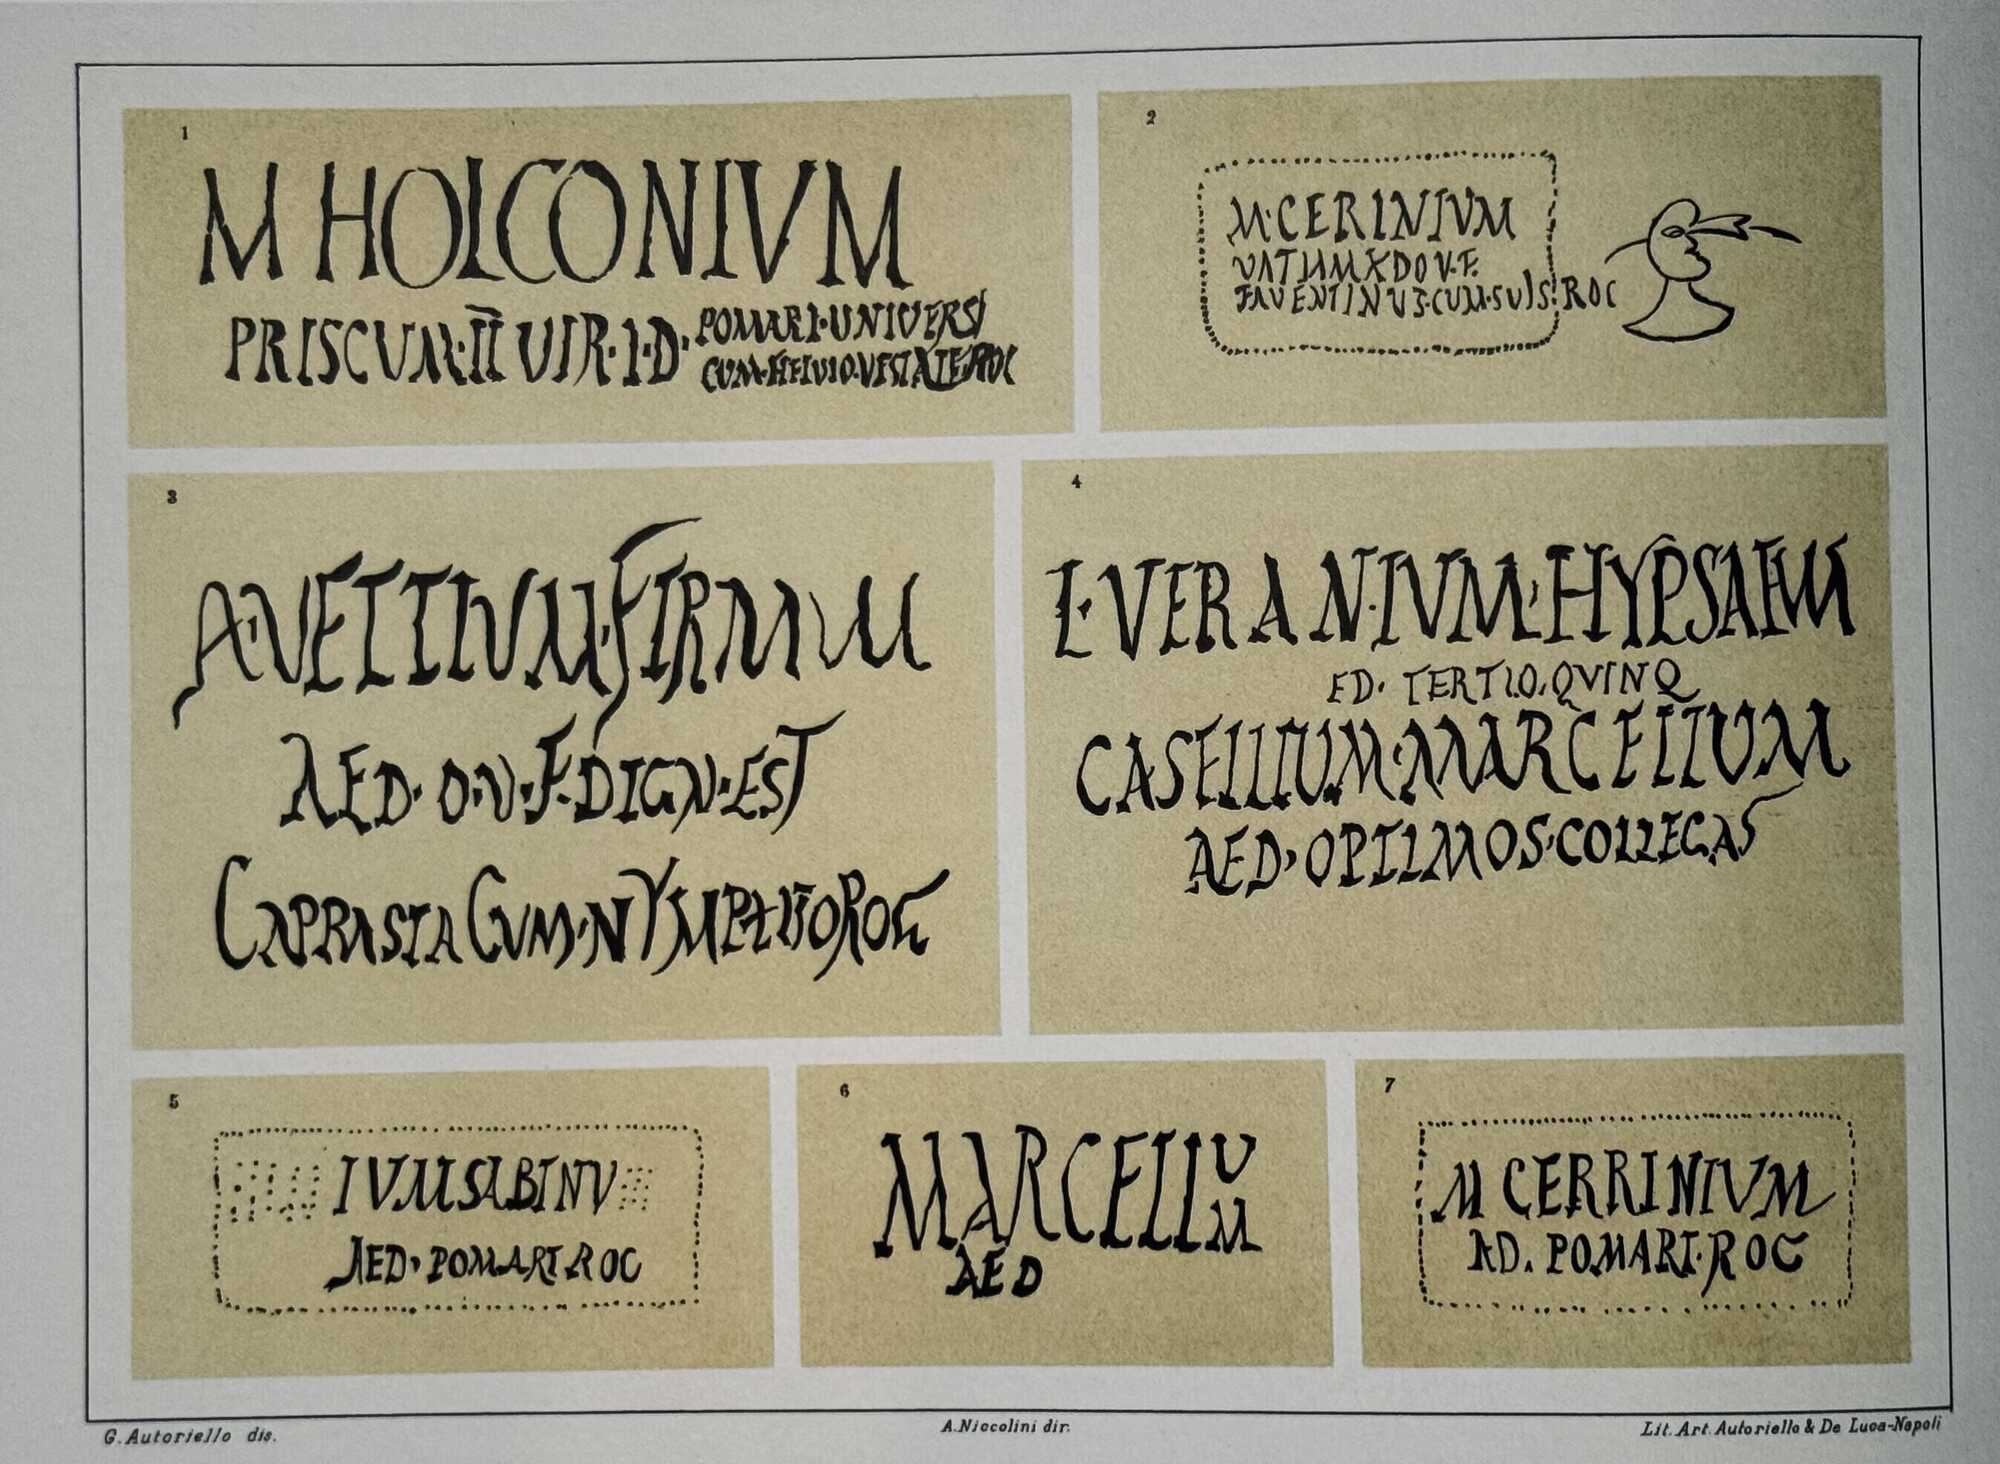 1
M HOLCONIVM
PRISCUM·II VIR·I·D· POMARI·UNIVERSI
CUM·HELVIO·VESTALE·ROC
2
M·CERINIVM
VATIAM X DO V·F·
FAVENTINUS·CUM·SUIS·ROC
3
A·VETTIVM·FIRMVM
AED·O·V·F·DIGN·EST
CAPRASIA CVM·NYMPHIO ROG
4
L·VERANIVM·HYPSAEUM
ED· TERTIO·QVINQ
CASELLIUM·MARCELLUM
AED·OPTIMOS·COLLEGAS
5
IVM SABINV
AED·POMARI·ROC
6
MARCELLUM
AED
7
M CERRINIVM
AD. POMARI·ROG
G. Autoriello dis.
A. Niccolini dir.
Lit. Art. Autoriello & De Luca-Napoli